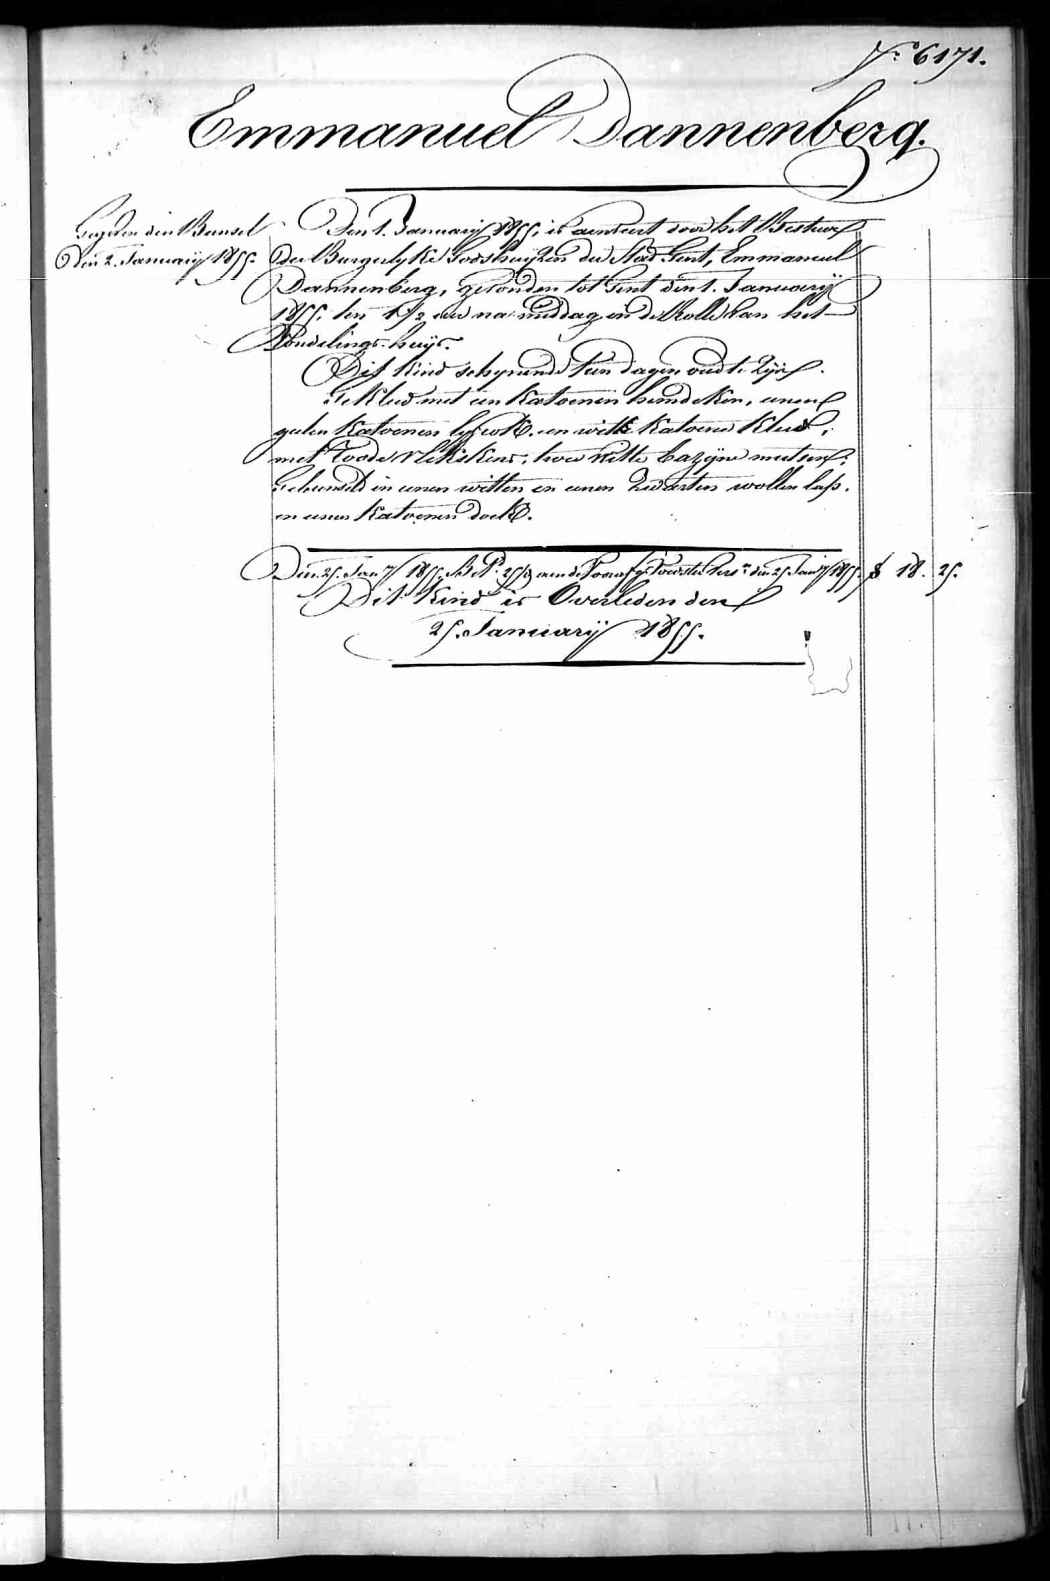 N.º 6171.
Emmanuel Dannenberg.
Gegeven den Bunsel
Den 2. Januarij 1855.
Den 1. Januarij 1855, is aenveert door het Bestuer
der Burgerlyke Godshuyzen der Stad Gent, Emmanuel
Dannenberg, gevonden tot Gent den 1. Januarij
1855, ten 1 1/2 ure na middag in de Rolle van het
Vondelings-huijs.
Dit kind schynende tien dagen oud te zyn.
Gekleed met een katoenen hemdeken, eenen
gelen katoenen lyfrok, een witte katoenen kleed,
met roode vlekskens, twee witte bazyne mutsen;
Gebunseld in eenen witten en eenen zwarten wollen lap,
en eenen katoenen doek.
Den 25. Jan.ry 1855, den 25 Jan.ry 1855. 18. 25.
Dit kind is Overleden den
25. Januarij 1855.